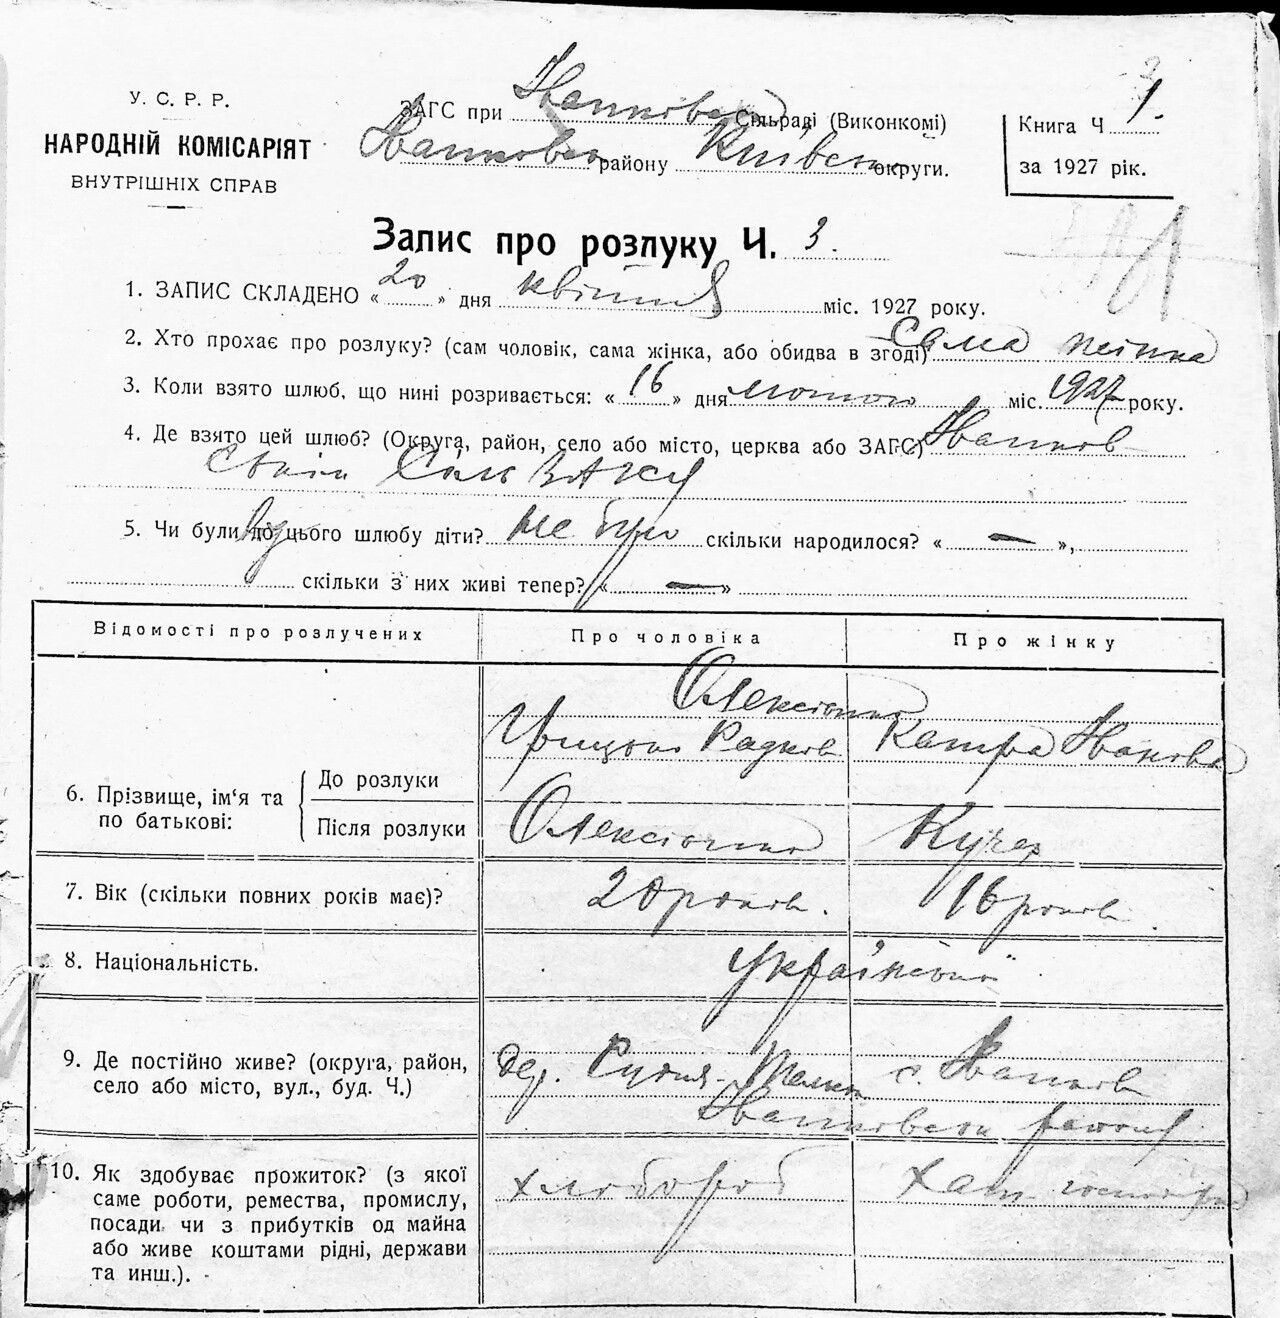 У. С. Р. Р.
НАРОДНІЙ КОМІСАРІЯТ
ВНУТРІШНІХ СПРАВ
ЗАГС при Іванковськ Сільраді (Виконкомі)
Іванковськ району Київськ округи.
Книга Ч 1.
за 1927 рік.
Запис про розлуку Ч. 3.
1. ЗАПИС СКЛАДЕНО « 20 » дня квітня міс. 1927 року.
2. Хто прохає про розлуку? (сам чоловік, сама жінка, або обидва в згоді) Сама жінка
3. Коли взято шлюб, що нині розривається: « 16 » дня лютого міс. 1927 року.
4. Де взято цей шлюб? (Округа, район, село або місто, церква або ЗАГС) Іванков
ський Сіль ЗАГС
5. Чи були до цього шлюбу діти? не було скільки народилося? « — »,
скільки з них живі тепер? « — »
Відомості про розлучених
Про чоловіка
Про жінку
6. Прізвище, ім'я та
по батькові:
До розлуки
Після розлуки
Олексієнко
Грицько Радков
Катря Іванова
Олексієнко
Кучер
7. Вік (скільки повних років має)?
20 років.
16 років
8. Національність.
Української
9. Де постійно живе? (округа, район,
село або місто, вул., буд. Ч.)
дер. Рудня-
с. Іванків
Іванковськ району
10. Як здобуває прожиток? (з якої
саме роботи, ремества, промислу,
посади чи з прибутків од майна
або живе коштами рідні, держави
та инш.).
хлібороб
Хат.